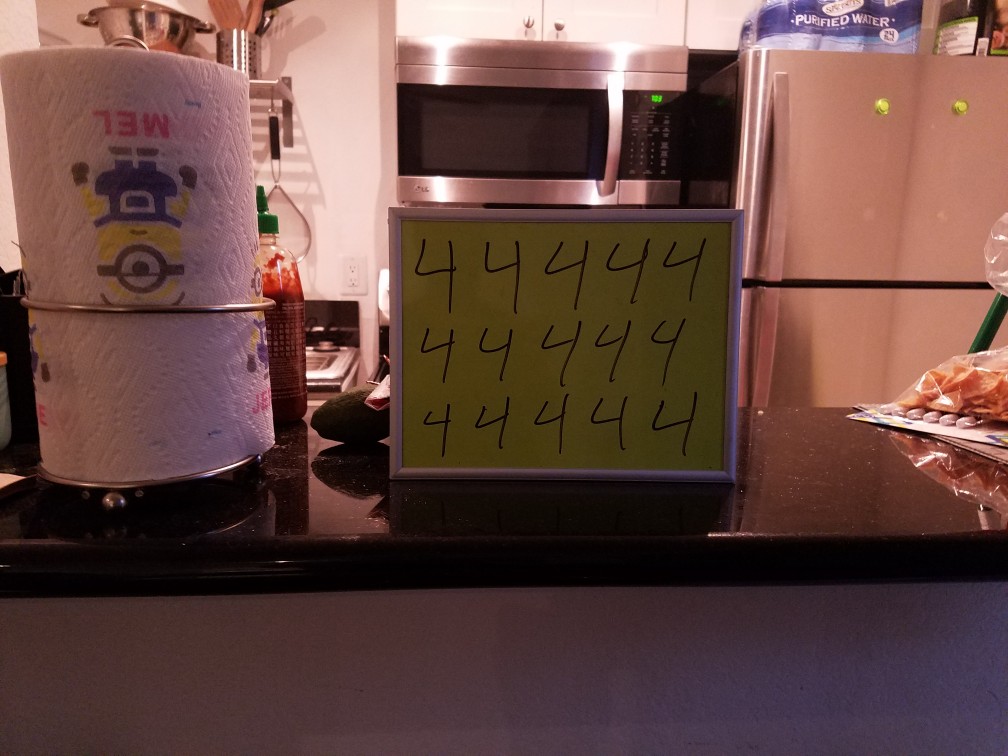 PURIFIED WATER
24
MEL
4 4 4 4 4
4 4 4 4 4
4 4 4 4 4
LG
JE
E